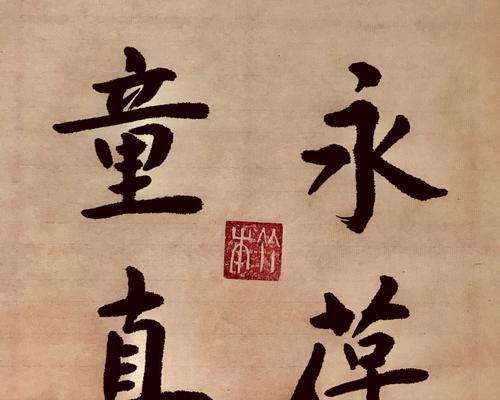 永葆
童真